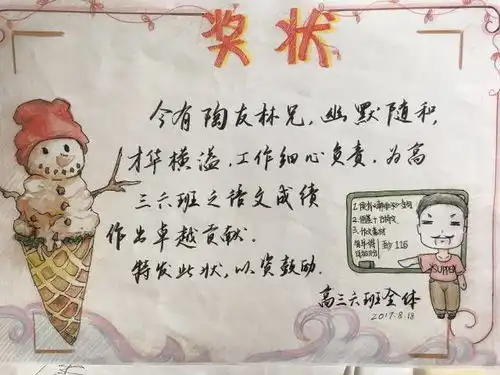 奖状
今有陶友林兄,幽默随和,
才华横溢,工作细心负责.为高
三六班之语文成绩
作出卓越贡献.
特发此状,以资鼓励.
高三六班全体
2017.8.18
3.作文素材
至少 116
SUPPER